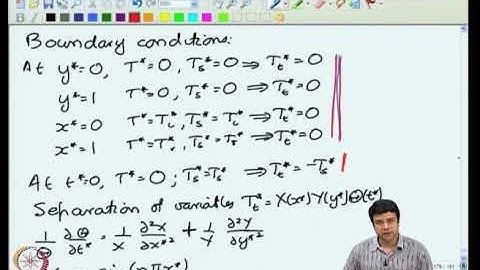 Boundary conditions:
At y*=0, T*=0, Ts*=0 ⇒ Tt*=0
y*=1 T*=0, Ts*=0 ⇒ Tt*=0
x*=0 T*=Ti*, Ts*=Ti* ⇒ Tt*=0
x*=1 T*=Ti*, Ts*=Ts* ⇒ Tt*=0
At t*=0, T*=0; Ts*=Ts* ⇒ Tt*=-Ts*
Separation of variables Tt*=X(x*)Y(y*)Θ(t*)
1/Θ ∂Θ/∂t* = 1/X ∂²X/∂x*² + 1/Y ∂²Y/∂y*²
(nπx*)